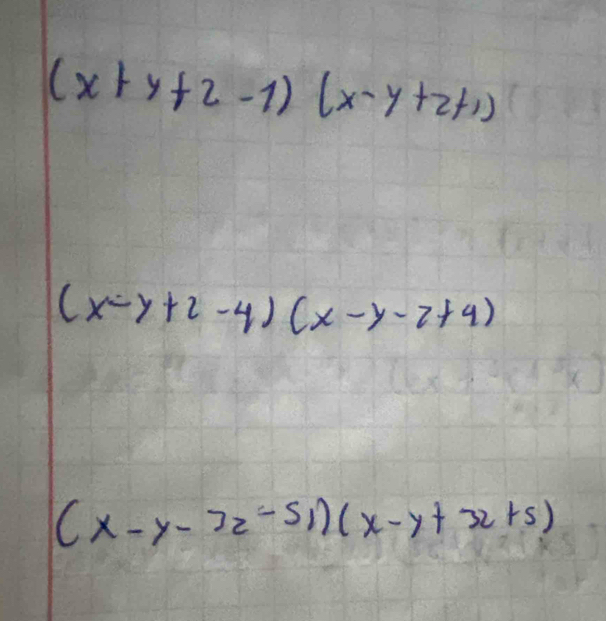 (x+y+z-1) (x-y+z+1)
(x-y+z-4) (x-y-z+4)
(x-y-3z-5) (x-y+3z+5)